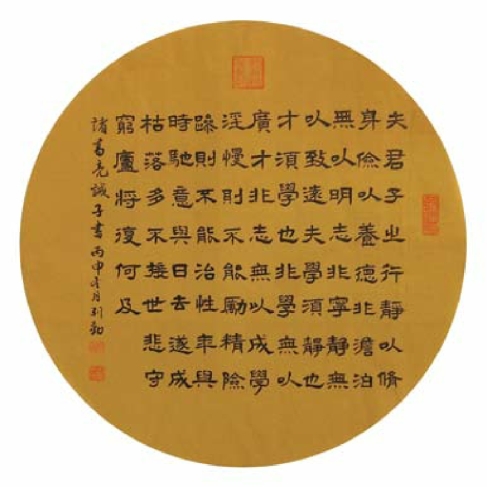 夫君子之行靜以脩
身儉以養德非澹泊
無以明志非寧靜無
以致遠夫學須靜也
才須學也非學無以
廣才非志無以成學
淫慢則不能勵精險
躁則不能治性年與
時馳意與日去遂成
枯落多不接世悲守
窮廬將復何及
諸葛亮誡子書丙申冬月